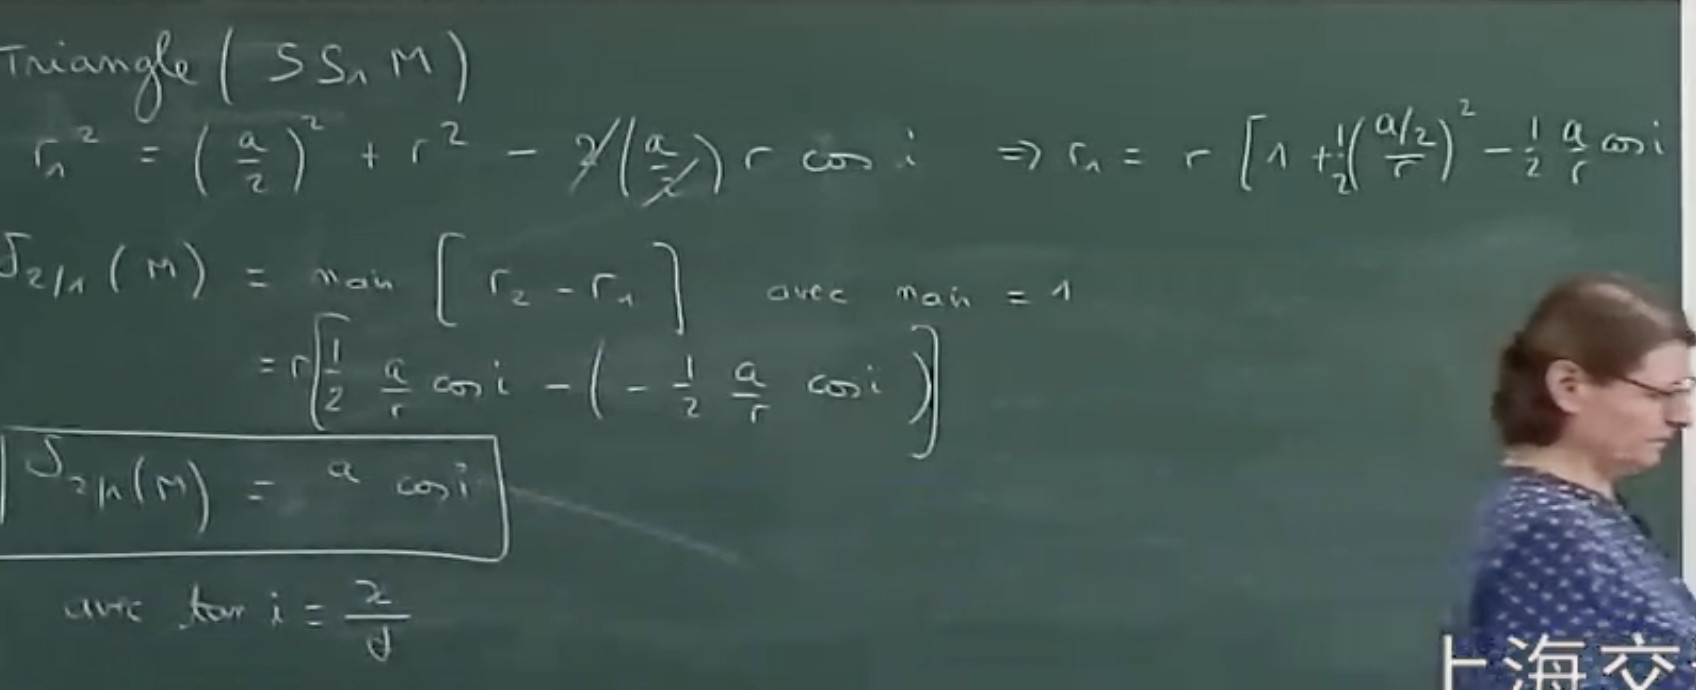 Triangle (SS₁M)
r₁² = (a/2)² + r² - 2(a/2) r cos i ⇒ r₁ = r [1 + 1/2 ((a/2)/r)² - 1/2 a/r cos i
δ₂/₁(M) = nair [r₂ - r₁] avec nair = 1
= r[1/2 a/r cos i - (- 1/2 a/r cos i)]
δ₂/₁(M) = a cos i
avec tan i = x/d
上海交